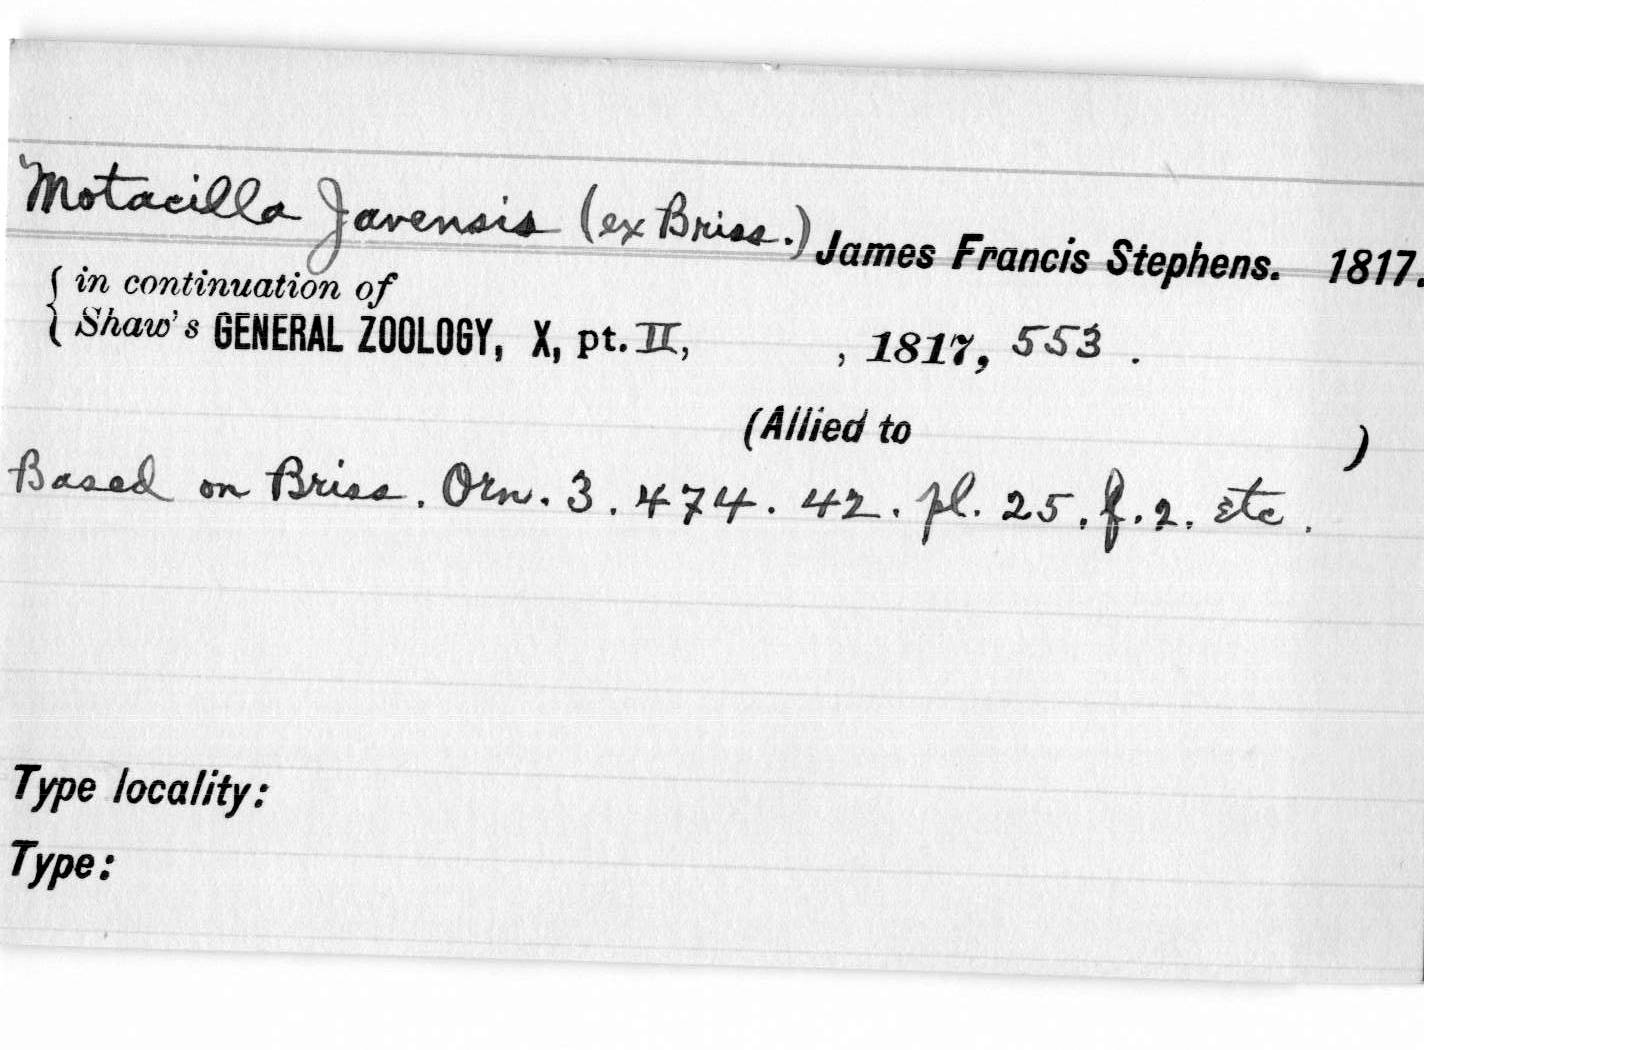 Motacilla Javensis (ex Briss.) James Francis Stephens. 1817.
in continuation of
Shaw's GENERAL ZOOLOGY, X, pt. II, , 1817, 553 .
(Allied to )
Based on Briss. Orn. 3. 474. 42. pl. 25. f. 2. etc.
Type locality:
Type: